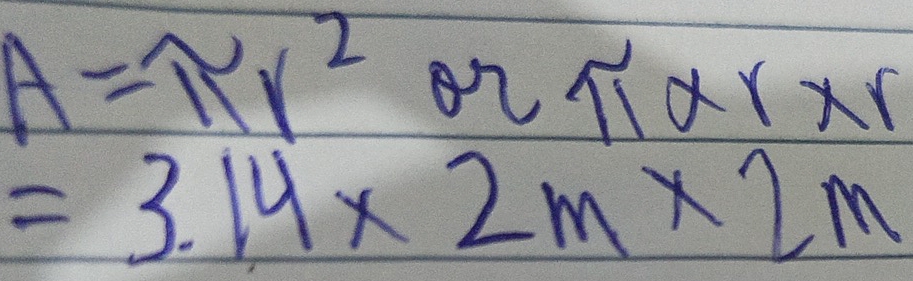 A = πr² or π x r x r
= 3.14 x 2m x 2m